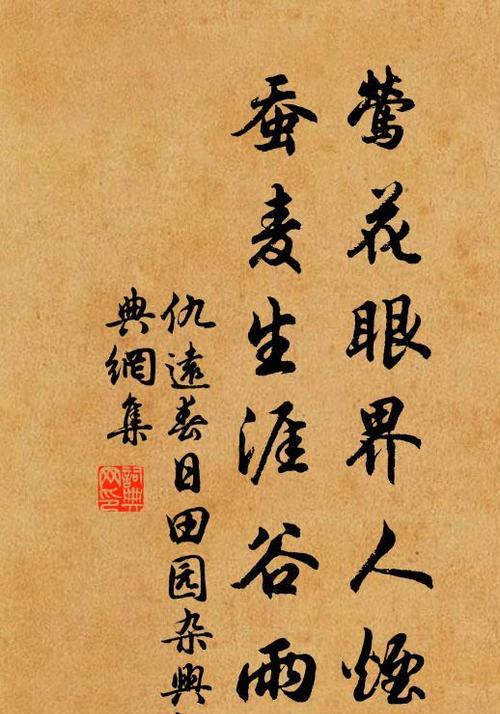 莺花眼界人烟
蚕麦生涯谷雨
仇远春日田园杂興
典網集
詞典网印